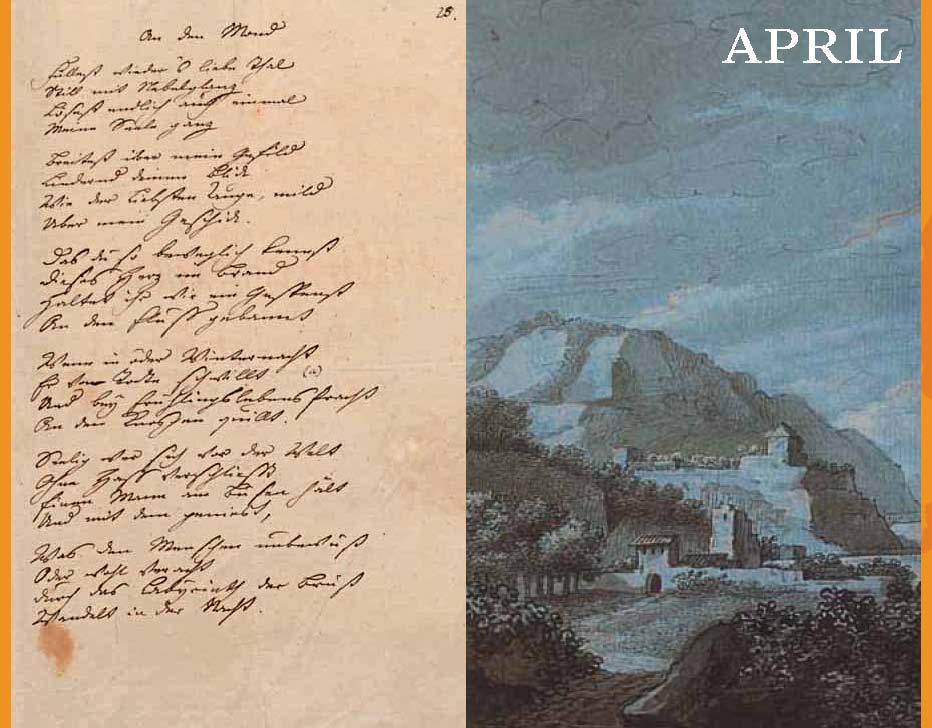 28.
An den Mond
Füllest wieder's liebe Thal
Still mit Nebelglanz
Lösest endlich auch einmal
Meine Seele ganz
Breitest über mein Gefild
Lindernd deinen Blick
Wie der Liebsten Auge, mild
Über mein Geschick.
Das du so beweglich kennst
Dieses Herz im Brand
Haltet ihr wie ein Gespenst
An den Fluß gebannt
Wenn in öder Winternacht
Er vom Todte schwillt (a)
Und bey Frühlingslebens Pracht
An den Knospen quillt.
Seelig wer sich vor der Welt
Ohne Haß verschließt
Einen Mann am Busen hält
Und mit dem geniest,
Was den Menschen unbewußt
Oder wohl veracht
durch das Labyrinth der Brust
Wandelt in der Nacht.
APRIL